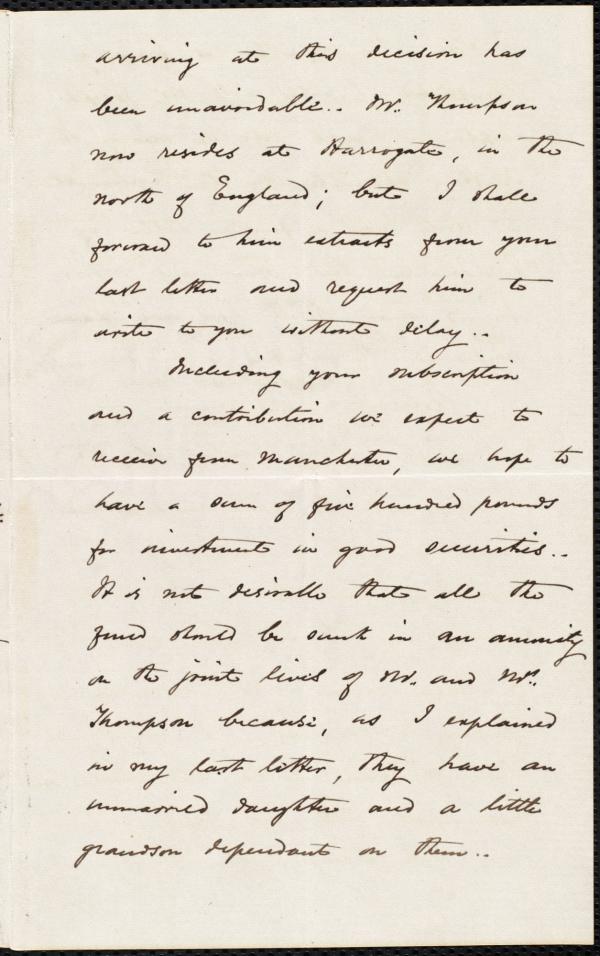 arriving at this decision has
been unavoidable.. Mr. Thompson
now resides at Harrogate, in the
north of England; but I shall
forward to him extracts from your
last letter and request him to
write to you without delay..
Including your subscription
and a contribution we expect to
receive from Manchester, we hope to
have a sum of five hundred pounds
for investment in good securities..
It is not desirable that all the
fund should be sunk in an annuity
on the joint lives of Mr. and Mrs.
Thompson because, as I explained
in my last letter, they have an
unmarried daughter and a little
grandson dependant on them..